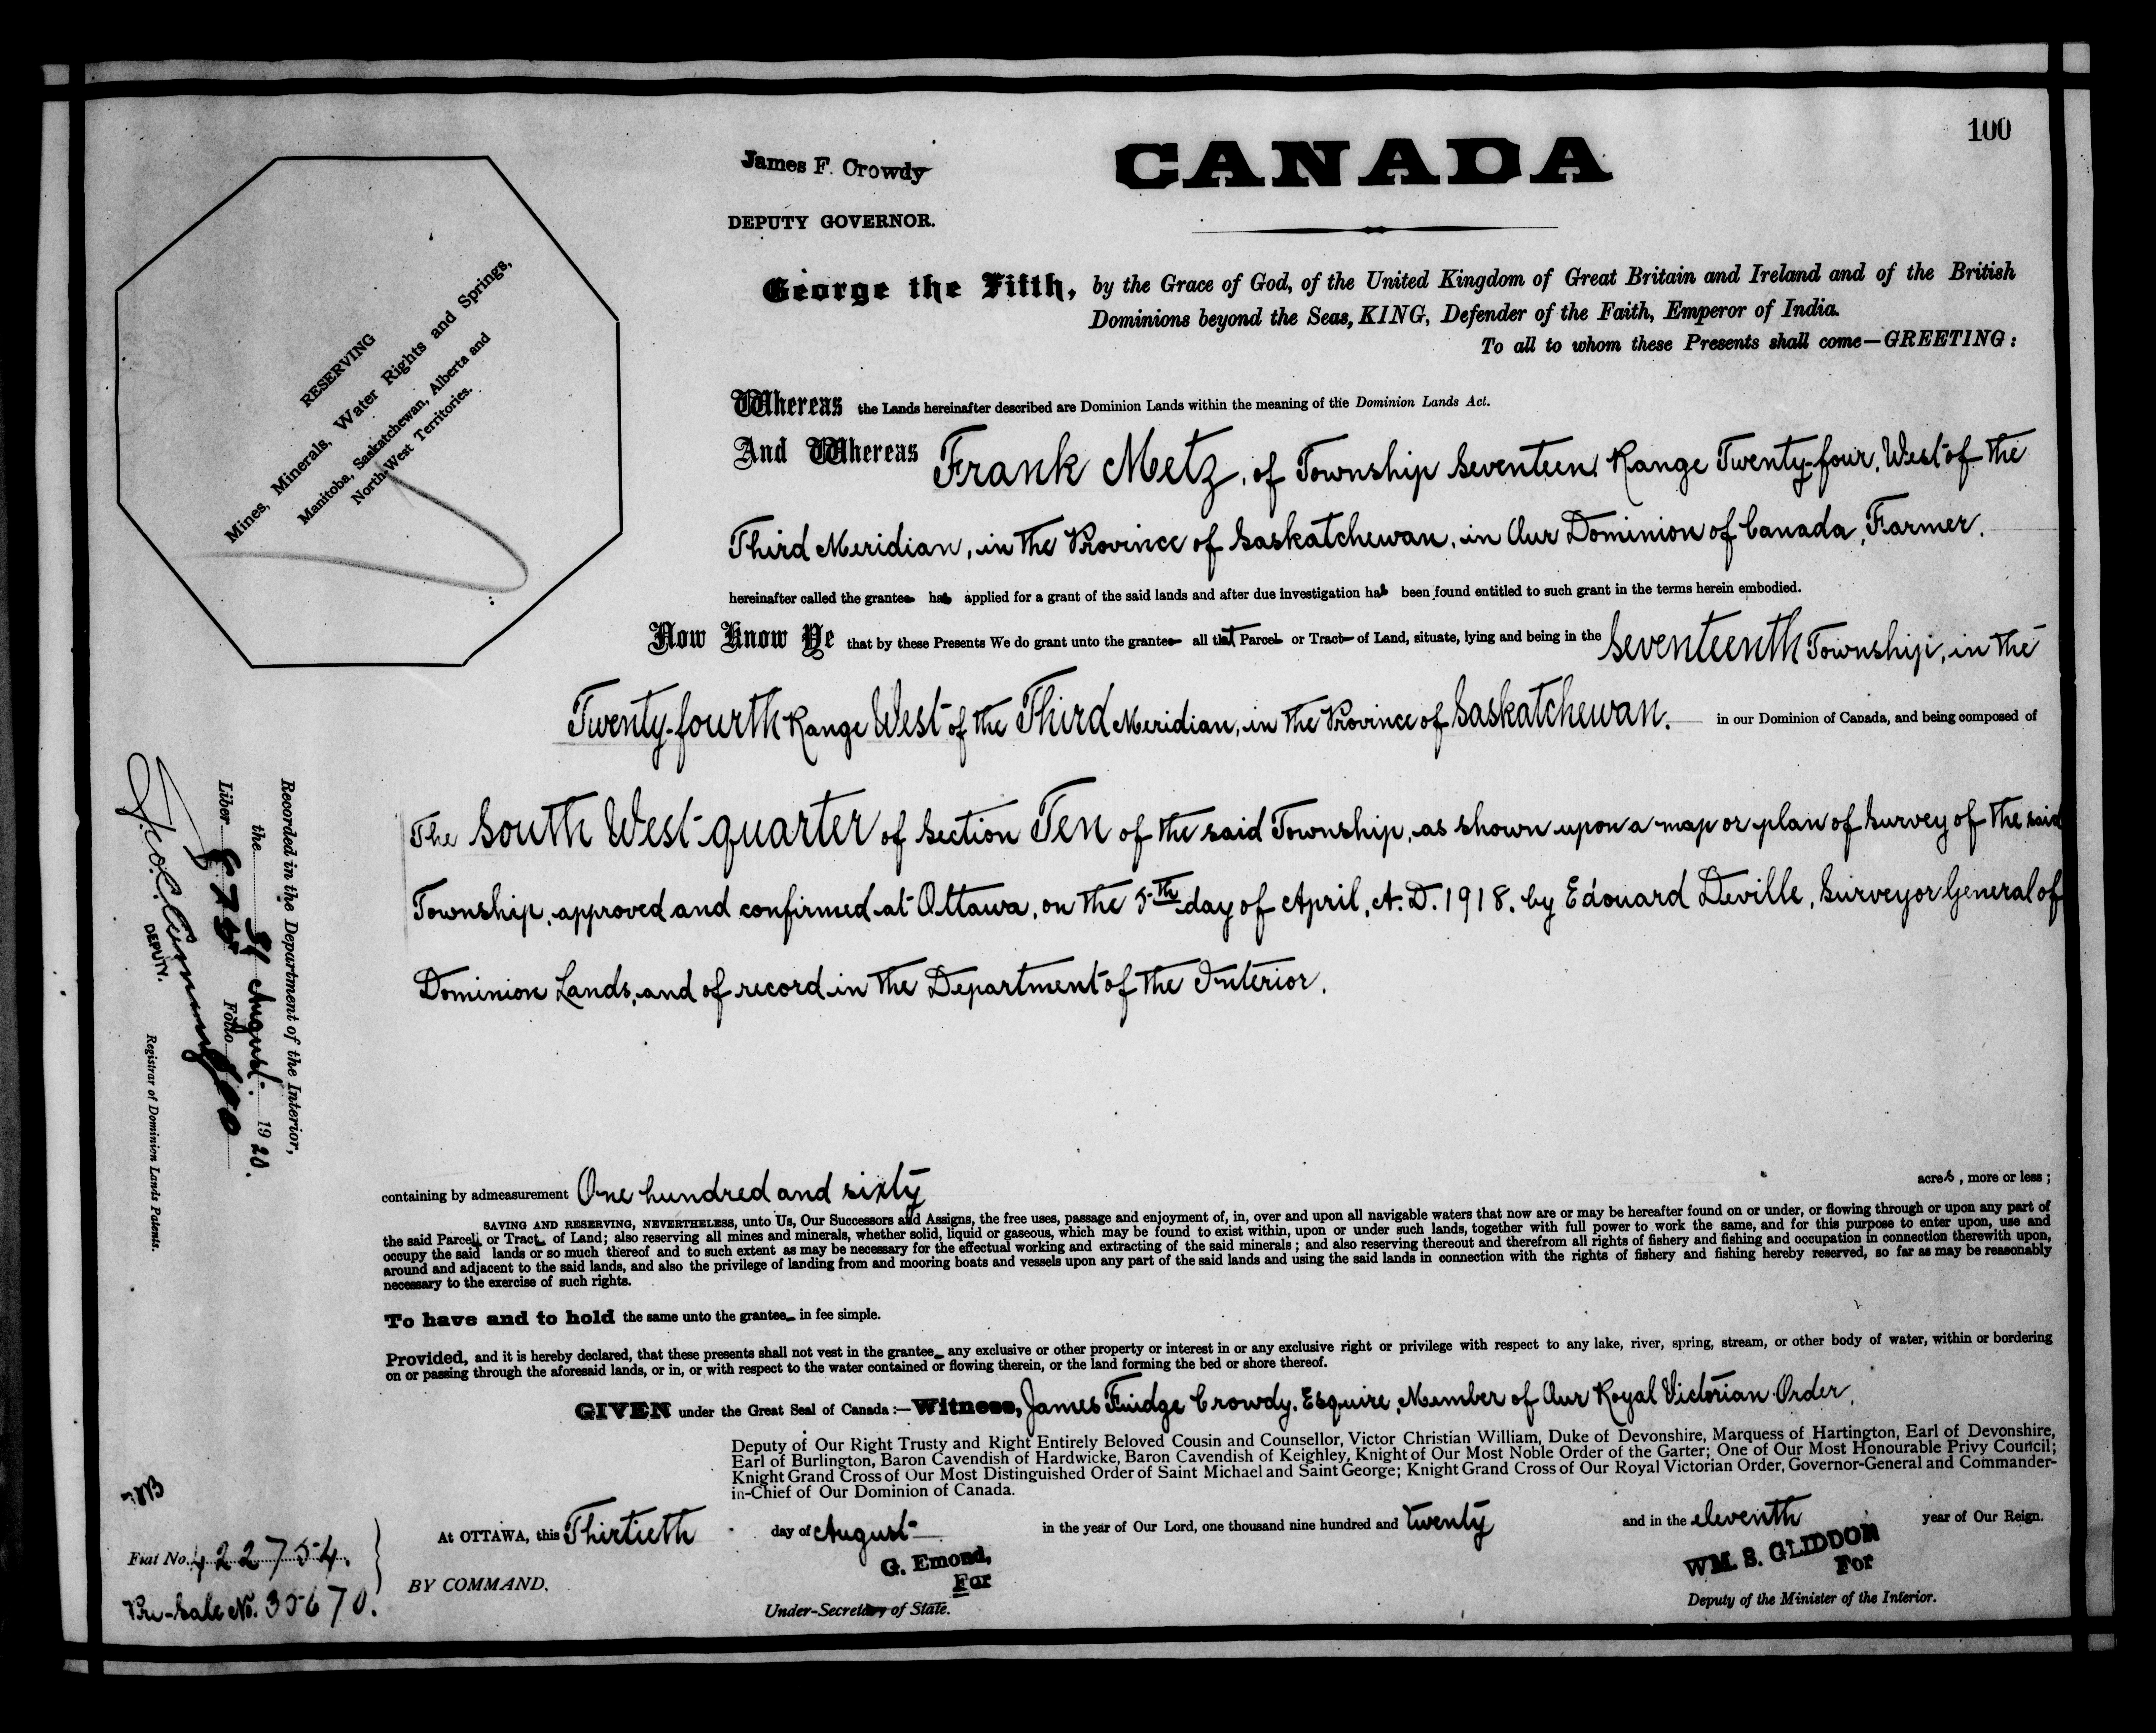 100
James F. Crowdy
DEPUTY GOVERNOR.
CANADA
George the Fifth, by the Grace of God, of the United Kingdom of Great Britain and Ireland and of the British
Dominions beyond the Seas, KING, Defender of the Faith, Emperor of India.
To all to whom these Presents shall come—GREETING:
RESERVING
Mines, Minerals, Water Rights and Springs,
Manitoba, Saskatchewan, Alberta and
North-West Territories.
Whereas the Lands hereinafter described are Dominion Lands within the meaning of the Dominion Lands Act.
And Whereas Frank Metz, of Township Seventeen Range Twenty-four, West of the
Third Meridian, in the Province of Saskatchewan, in Our Dominion of Canada, Farmer.
hereinafter called the grantee has applied for a grant of the said lands and after due investigation has been found entitled to such grant in the terms herein embodied.
Now Know Ye that by these Presents We do grant unto the grantee all that Parcel or Tract of Land, situate, lying and being in the Seventeenth Township, in the
Twenty-fourth Range West of the Third Meridian, in the Province of Saskatchewan. in our Dominion of Canada, and being composed of
The South West quarter of Section Ten of the said Township, as shown upon a map or plan of Survey of the said
Township, approved and confirmed at Ottawa, on the 5th day of April, A.D. 1918, by Edouard Deville, Surveyor General of
Dominion Lands, and of record in the Department of the Interior.
Recorded in the Department of the Interior,
the 31 August 1920.
Liber Folio 100
DEPUTY.
Registrar of Dominion Lands Patents.
containing by admeasurement One hundred and sixty acres, more or less;
SAVING AND RESERVING, NEVERTHELESS, unto Us, Our Successors and Assigns, the free uses, passage and enjoyment of, in, over and upon all navigable waters that now are or may be hereafter found on or under, or flowing through or upon any part of
the said Parcel or Tract of Land; also reserving all mines and minerals, whether solid, liquid or gaseous, which may be found to exist within, upon or under such lands, together with full power to work the same, and for this purpose to enter upon, use and
occupy the said lands or so much thereof and to such extent as may be necessary for the effectual working and extracting of the said minerals; and also reserving thereout and therefrom all rights of fishery and fishing and occupation in connection therewith upon,
around and adjacent to the said lands, and also the privilege of landing from and mooring boats and vessels upon any part of the said lands and using the said lands in connection with the rights of fishery and fishing hereby reserved, so far as may be reasonably
necessary to the exercise of such rights.
To have and to hold the same unto the grantee in fee simple.
Provided, and it is hereby declared, that these presents shall not vest in the grantee any exclusive or other property or interest in or any exclusive right or privilege with respect to any lake, river, spring, stream, or other body of water, within or bordering
on or passing through the aforesaid lands, or in, or with respect to the water contained or flowing therein, or the land forming the bed or shore thereof.
GIVEN under the Great Seal of Canada:—Witness, James Fuidge Crowdy, Esquire, Member of Our Royal Victorian Order,
Deputy of Our Right Trusty and Right Entirely Beloved Cousin and Counsellor, Victor Christian William, Duke of Devonshire, Marquess of Hartington, Earl of Devonshire,
Earl of Burlington, Baron Cavendish of Hardwicke, Baron Cavendish of Keighley, Knight of Our Most Noble Order of the Garter; One of Our Most Honourable Privy Council;
Knight Grand Cross of Our Most Distinguished Order of Saint Michael and Saint George; Knight Grand Cross of Our Royal Victorian Order, Governor-General and Commander-
in-Chief of Our Dominion of Canada.
At OTTAWA, this Thirtieth day of August in the year of Our Lord, one thousand nine hundred and twenty and in the eleventh year of Our Reign.
Fiat No. 422754.
Pre-Sale No. 35670.
BY COMMAND,
G. Emond,
For
Under-Secretary of State.
WM. S. GLIDDON
For
Deputy of the Minister of the Interior.